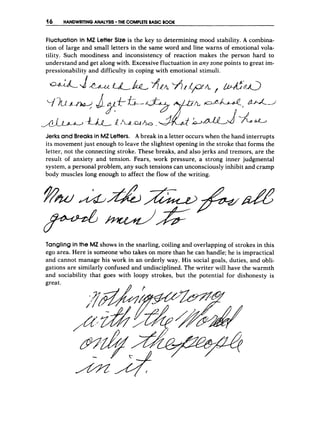 16 HANDWRITING ANALYSIS • THE COMPLETE BASIC BOOK
Fluctuation in MZ Letter Size is the key to determining mood stability. A combina-
tion of large and small letters in the same word and line warns of emotional vola-
tility. Such moodiness and inconsistency of reaction makes the person hard to
understand and get along with. Excessive fluctuation in any zone points to great im-
pressionability and difficulty in coping with emotional stimuli.
said I could be her helper, which
means I get to stay after school and
clean the erasers. That's all I have
Jerks and Breaks in MZ Letters. A break in a letter occurs when the hand interrupts
its movement just enough to leave the slightest opening in the stroke that forms the
letter, not the connecting stroke. These breaks, and also jerks and tremors, are the
result of anxiety and tension. Fears, work pressure, a strong inner judgmental
system, a personal problem, any such tensions can unconsciously inhibit and cramp
body muscles long enough to affect the flow of the writing.
Now is the time for all
good men to
Tangling in the MZ shows in the snarling, coiling and overlapping of strokes in this
ego area. Here is someone who takes on more than he can handle; he is impractical
and cannot manage his work in an orderly way. His social goals, duties, and obli-
gations are similarly confused and undisciplined. The writer will have the warmth
and sociability that goes with loopy strokes, but the potential for dishonesty is
great.
Nothing's wrong
with the World
only the people
in it.